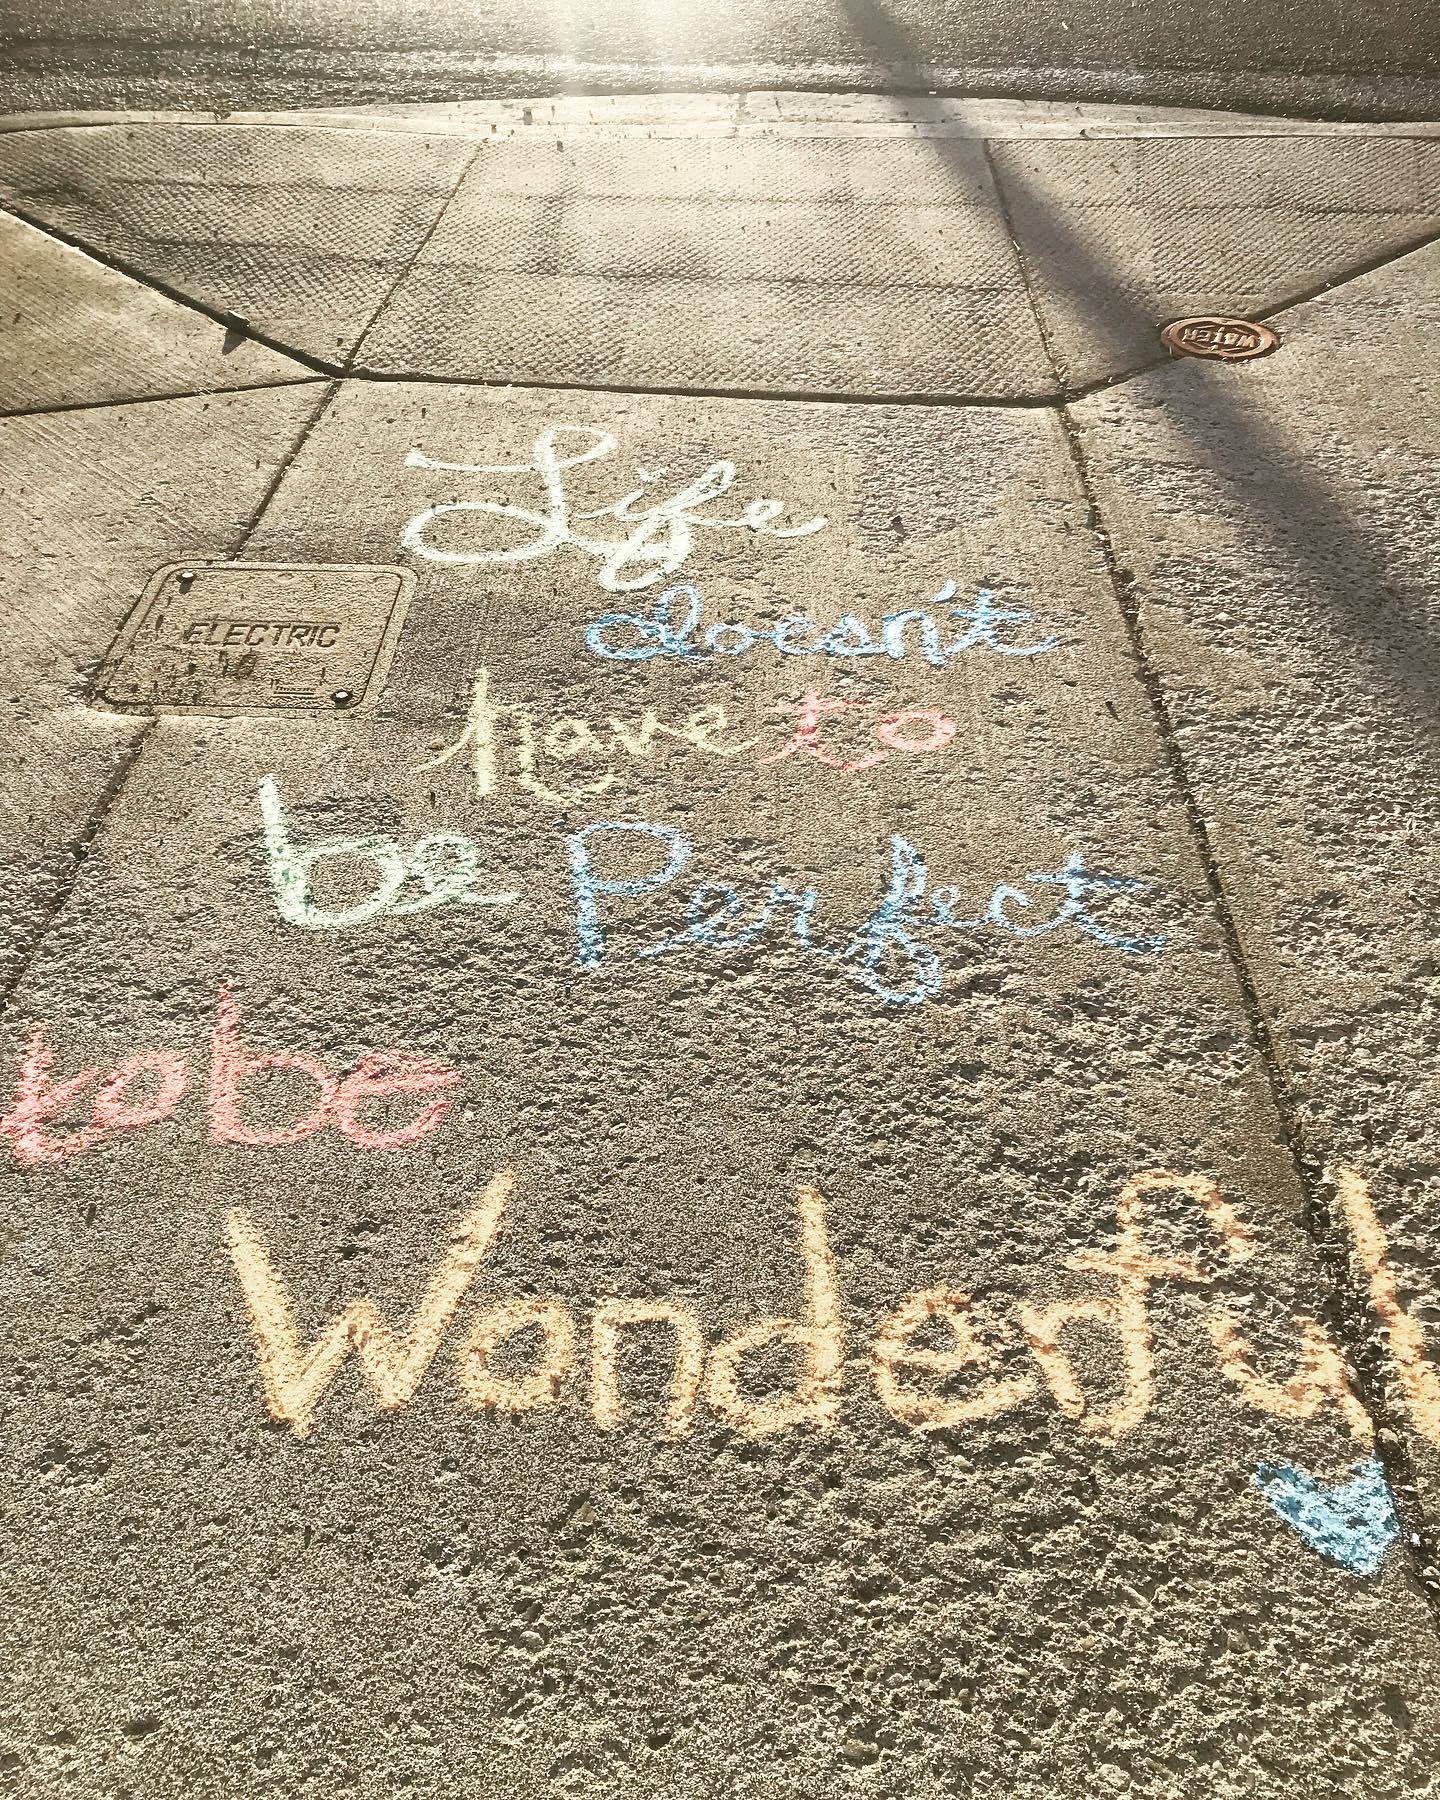 WATER
Life
doesn't
ELECTRIC
have to
be Perfect
to be
Wonderful